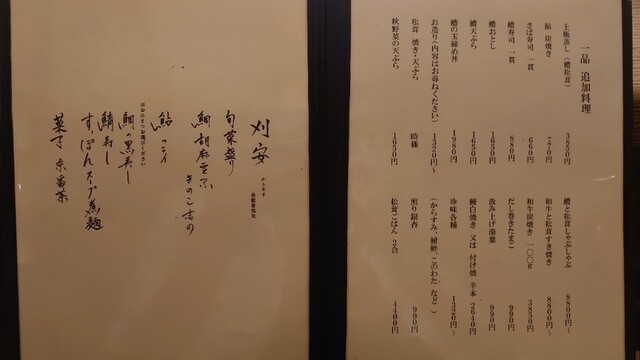 一品 追加料理
土瓶蒸し(鱧松茸) 3850円
鮎 炭焼き 770円
さば寿司 一貫 660円
鱧寿司 一貫 880円
鱧おとし 1650円
鱧天ぷら 1650円
鱧の玉締め丼 1980円
お造り(内容はお尋ねください) 1320円~
松茸 焼き・天ぷら 時価
秋野菜の天ぷら 1650円
鱧と松茸しゃぶしゃぶ 8800円~
和牛と松茸すき焼き 8800円~
和牛炭焼き 一〇〇g 3850円
だし巻きたまご 990円
汲み上げ湯葉 990円
鰻白焼き 又は 付け焼 半本 2640円
珍味各種 1320円~
(からすみ、鯖鮓、このわた など)
煎り銀杏 990円
松茸ごはん 2合 4400円
刈安
かりやす
旬菜盛り
きのこ
鮎
お選びください
鯛の
鯖寿し
すっぽんスープ煮麺
菓子 京番茶